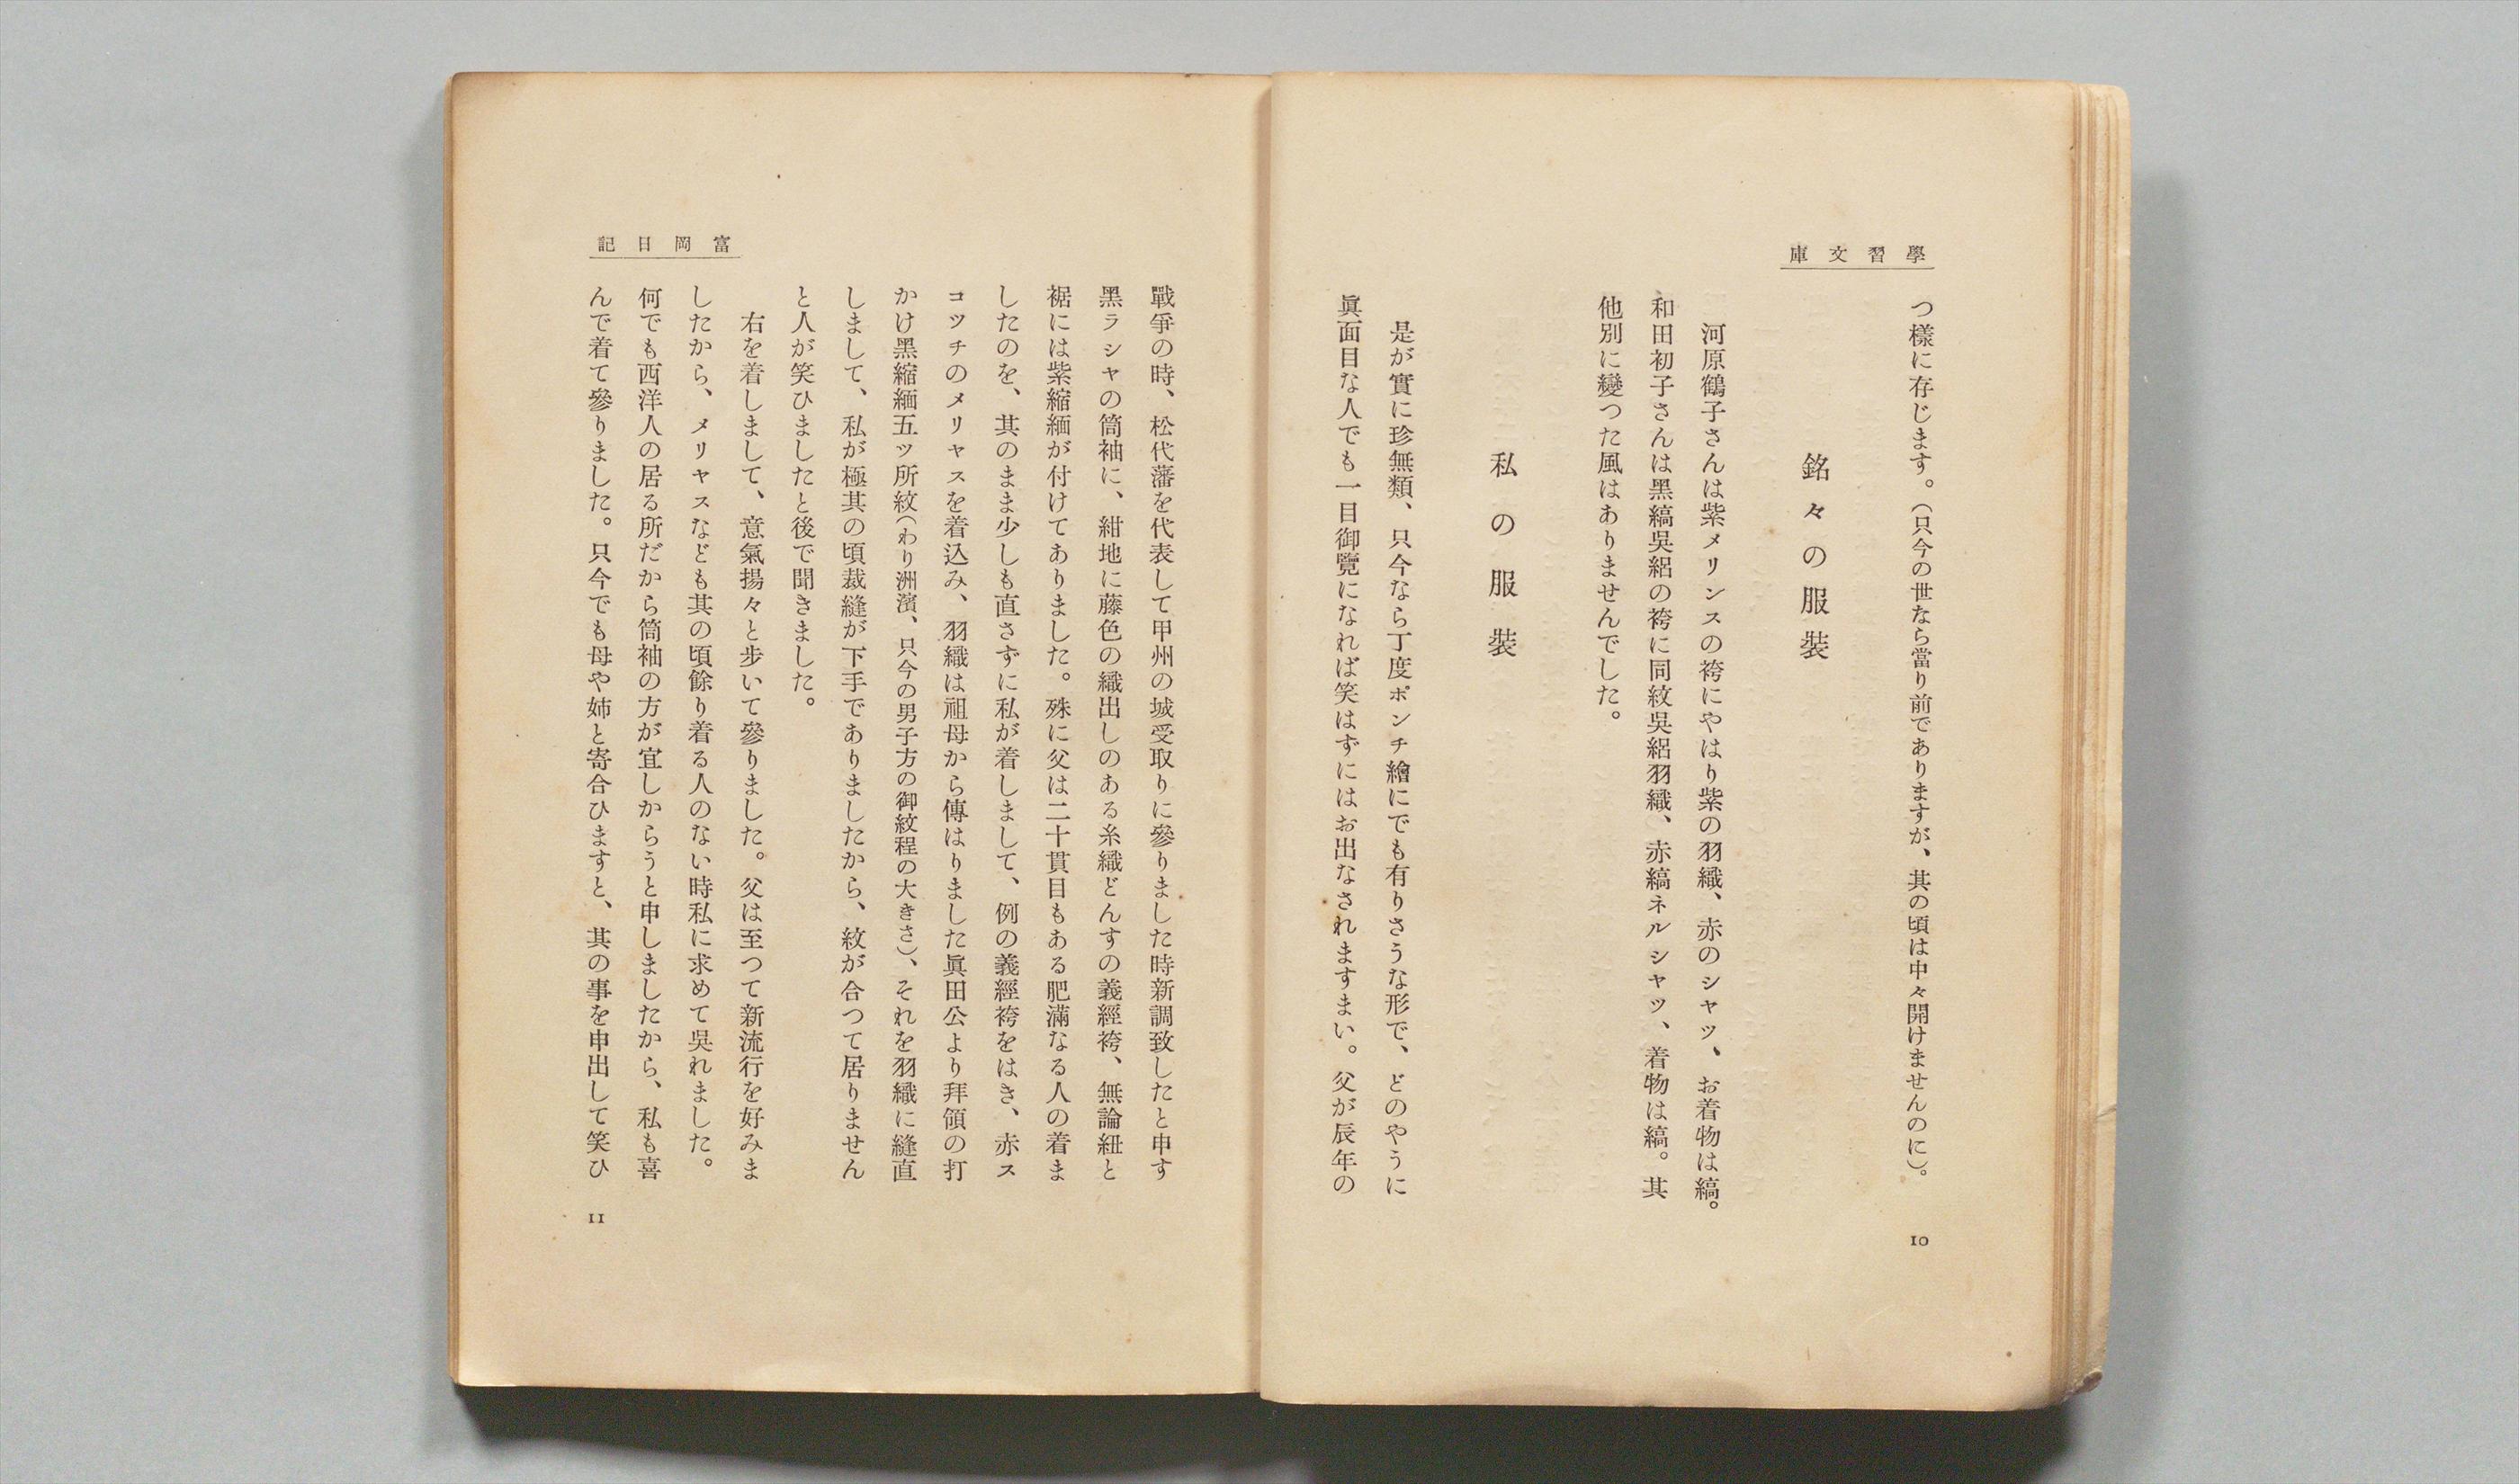 學習文庫
つ樣に存じます。（只今の世なら當り前でありますが、其の頃は中々開けませんのに）。
銘々の服裝
河原鶴子さんは紫メリンスの袴にやはり紫の羽織、赤のシャツ、お着物は縞。
和田初子さんは黑縞吳絽の袴に同紋吳絽羽織、赤縞ネルシャツ、着物は縞。其
他別に變つた風はありませんでした。
私の服裝
是が實に珍無類、只今なら丁度ポンチ繪にでも有りさうな形で、どのやうに
眞面目な人でも一目御覽になれば笑はずにはお出なされますまい。父が辰年の
10
富岡日記
戰爭の時、松代藩を代表して甲州の城受取りに參りました時新調致したと申す
黑ラシャの筒袖に、紺地に藤色の織出しのある糸織どんすの義經袴、無論紐と
裾には紫縮緬が付けてありました。殊に父は二十貫目もある肥滿なる人の着ま
したのを、其のまま少しも直さずに私が着しまして、例の義經袴をはき、赤ス
コツチのメリヤスを着込み、羽織は祖母から傳はりました眞田公より拜領の打
かけ黑縮緬五ツ所紋（わり洲濱、只今の男子方の御紋程の大きさ）、それを羽織に縫直
しまして、私が極其の頃裁縫が下手でありましたから、紋が合つて居りません
と人が笑ひましたと後で聞きました。
右を着しまして、意氣揚々と步いて參りました。父は至つて新流行を好みま
したから、メリヤスなども其の頃餘り着る人のない時私に求めて吳れました。
何でも西洋人の居る所だから筒袖の方が宜しからうと申しましたから、私も喜
んで着て參りました。只今でも母や姉と寄合ひますと、其の事を申出して笑ひ
11